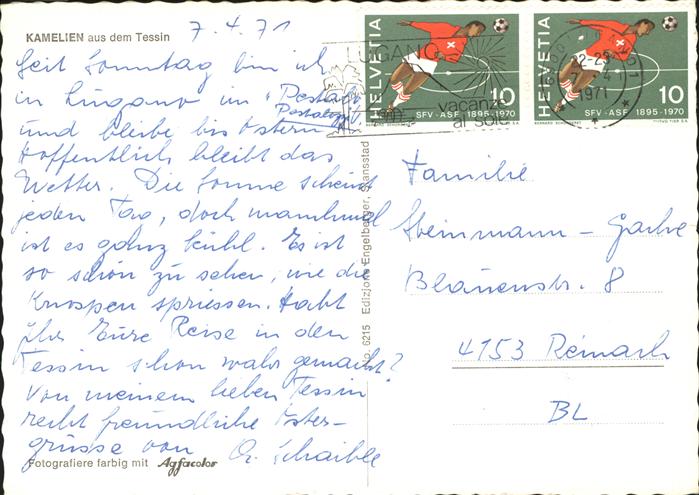 7.4.71
KAMELIEN aus dem Tessin
Seit Sonntag bin ich
in Lugano im "Pestalozzi
und bleibe bis Ostern.
Hoffentlich bleibt das
Wetter. Die Sonne scheint
jeden Tag, doch manchmal
ist es ganz kühl. Es ist
so schön zu sehen, wie die
Knospen spriessen. Habt
Ihr Eure Reise in den
Tessin schon wahr gemacht?
Von meinem lieben Tessin
recht freundliche Oster-
grüsse von O. Schaible
Fotografiere farbig mit Agfacolor
6215 Edizione Engelberger, Stansstad
HELVETIA
10
SFV-ASF 1895-1970
HELVETIA
10
SFV-ASF 1895-1970
LUGANO
vacanze
al sole
22-23
7.4.
1971
Familie
Steinmann - Gache
Blauenstr. 8
4153 Reinach
BL